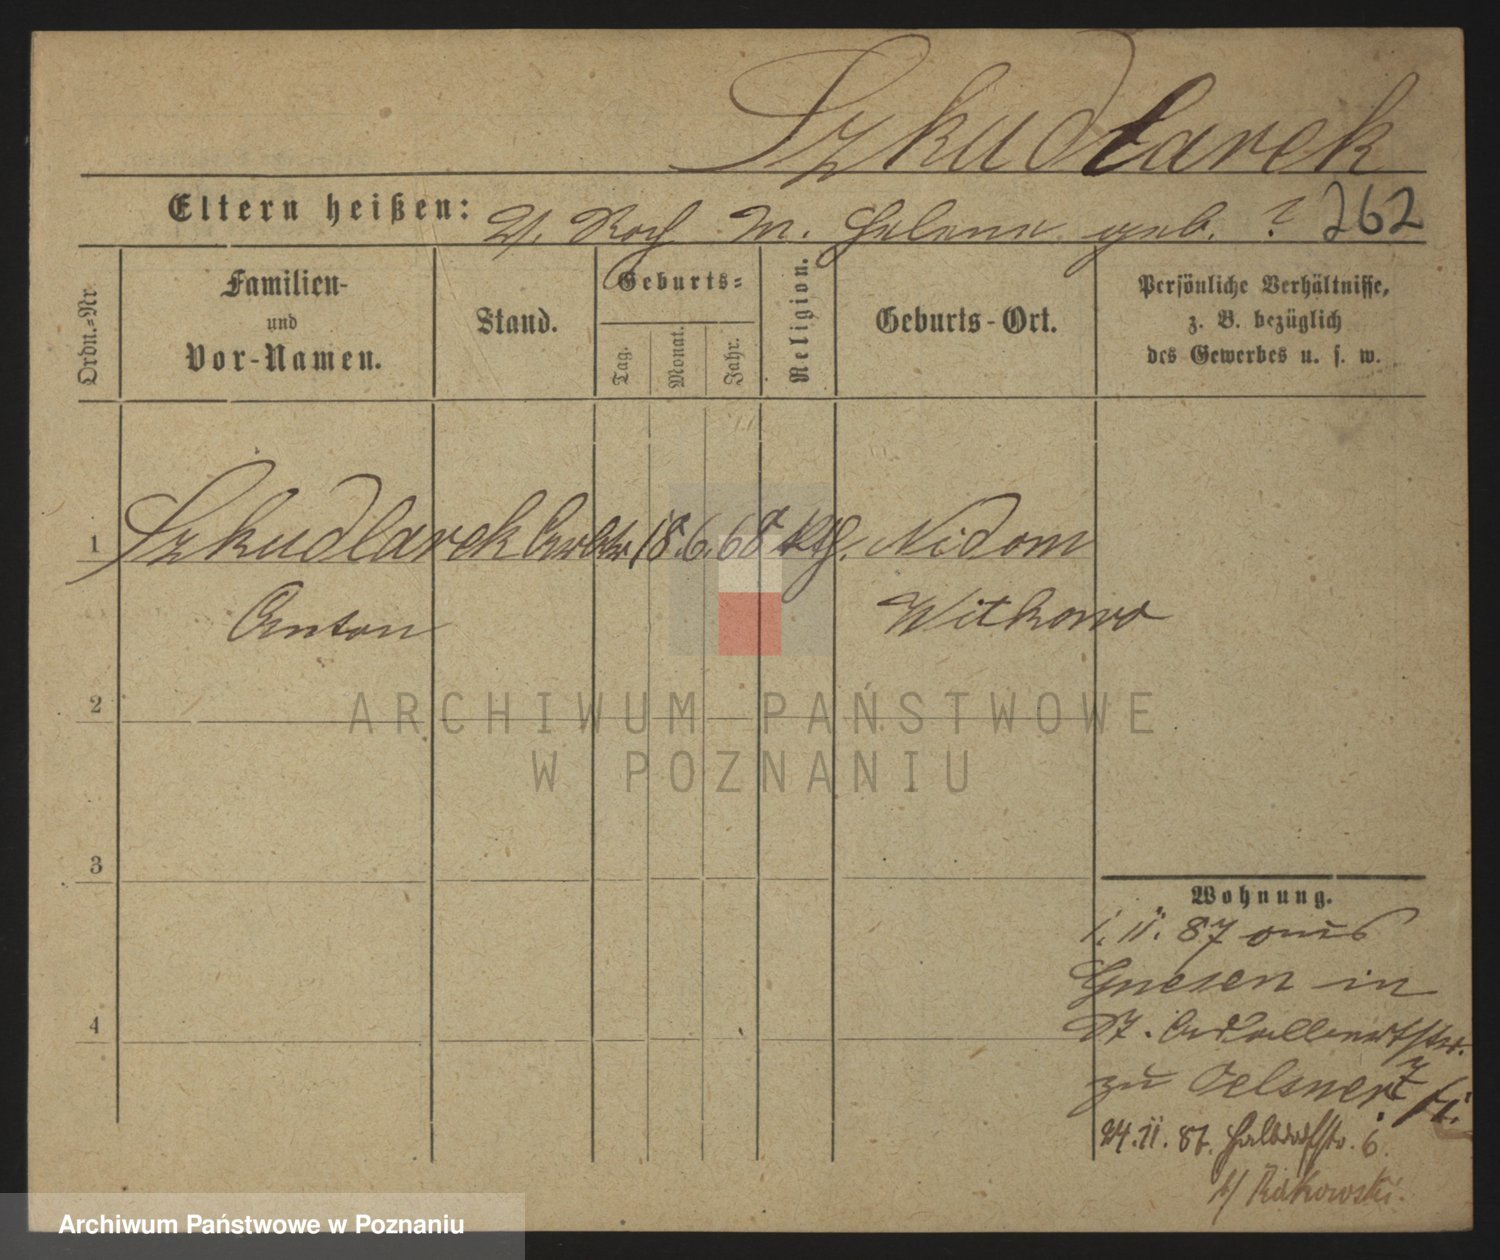 Szkudlarek
Eltern heißen: V. Roch M. Helene geb. ? 262
Ordn.-Nr
Familien-
und
Vor-Namen.
Stand.
Geburts-
Tag.
Monat.
Jahr.
Religion.
Geburts-Ort.
Persönliche Verhältnisse,
z. B. bezüglich
des Gewerbes u. s. w.
1 Szkudlarek 18. 6. 68 kth. Nidom
Anton Witkowo
2
3
4
Wohnung.
1. 11. 87 aus
Gnesen in
St. Adalbertstr.
zu Oelsner
24. 11. 87. Halbdorfstr. 6.
b/ Rakowski.
ARCHIWUM PAŃSTWOWE
W POZNANIU
Archiwum Państwowe w Poznaniu